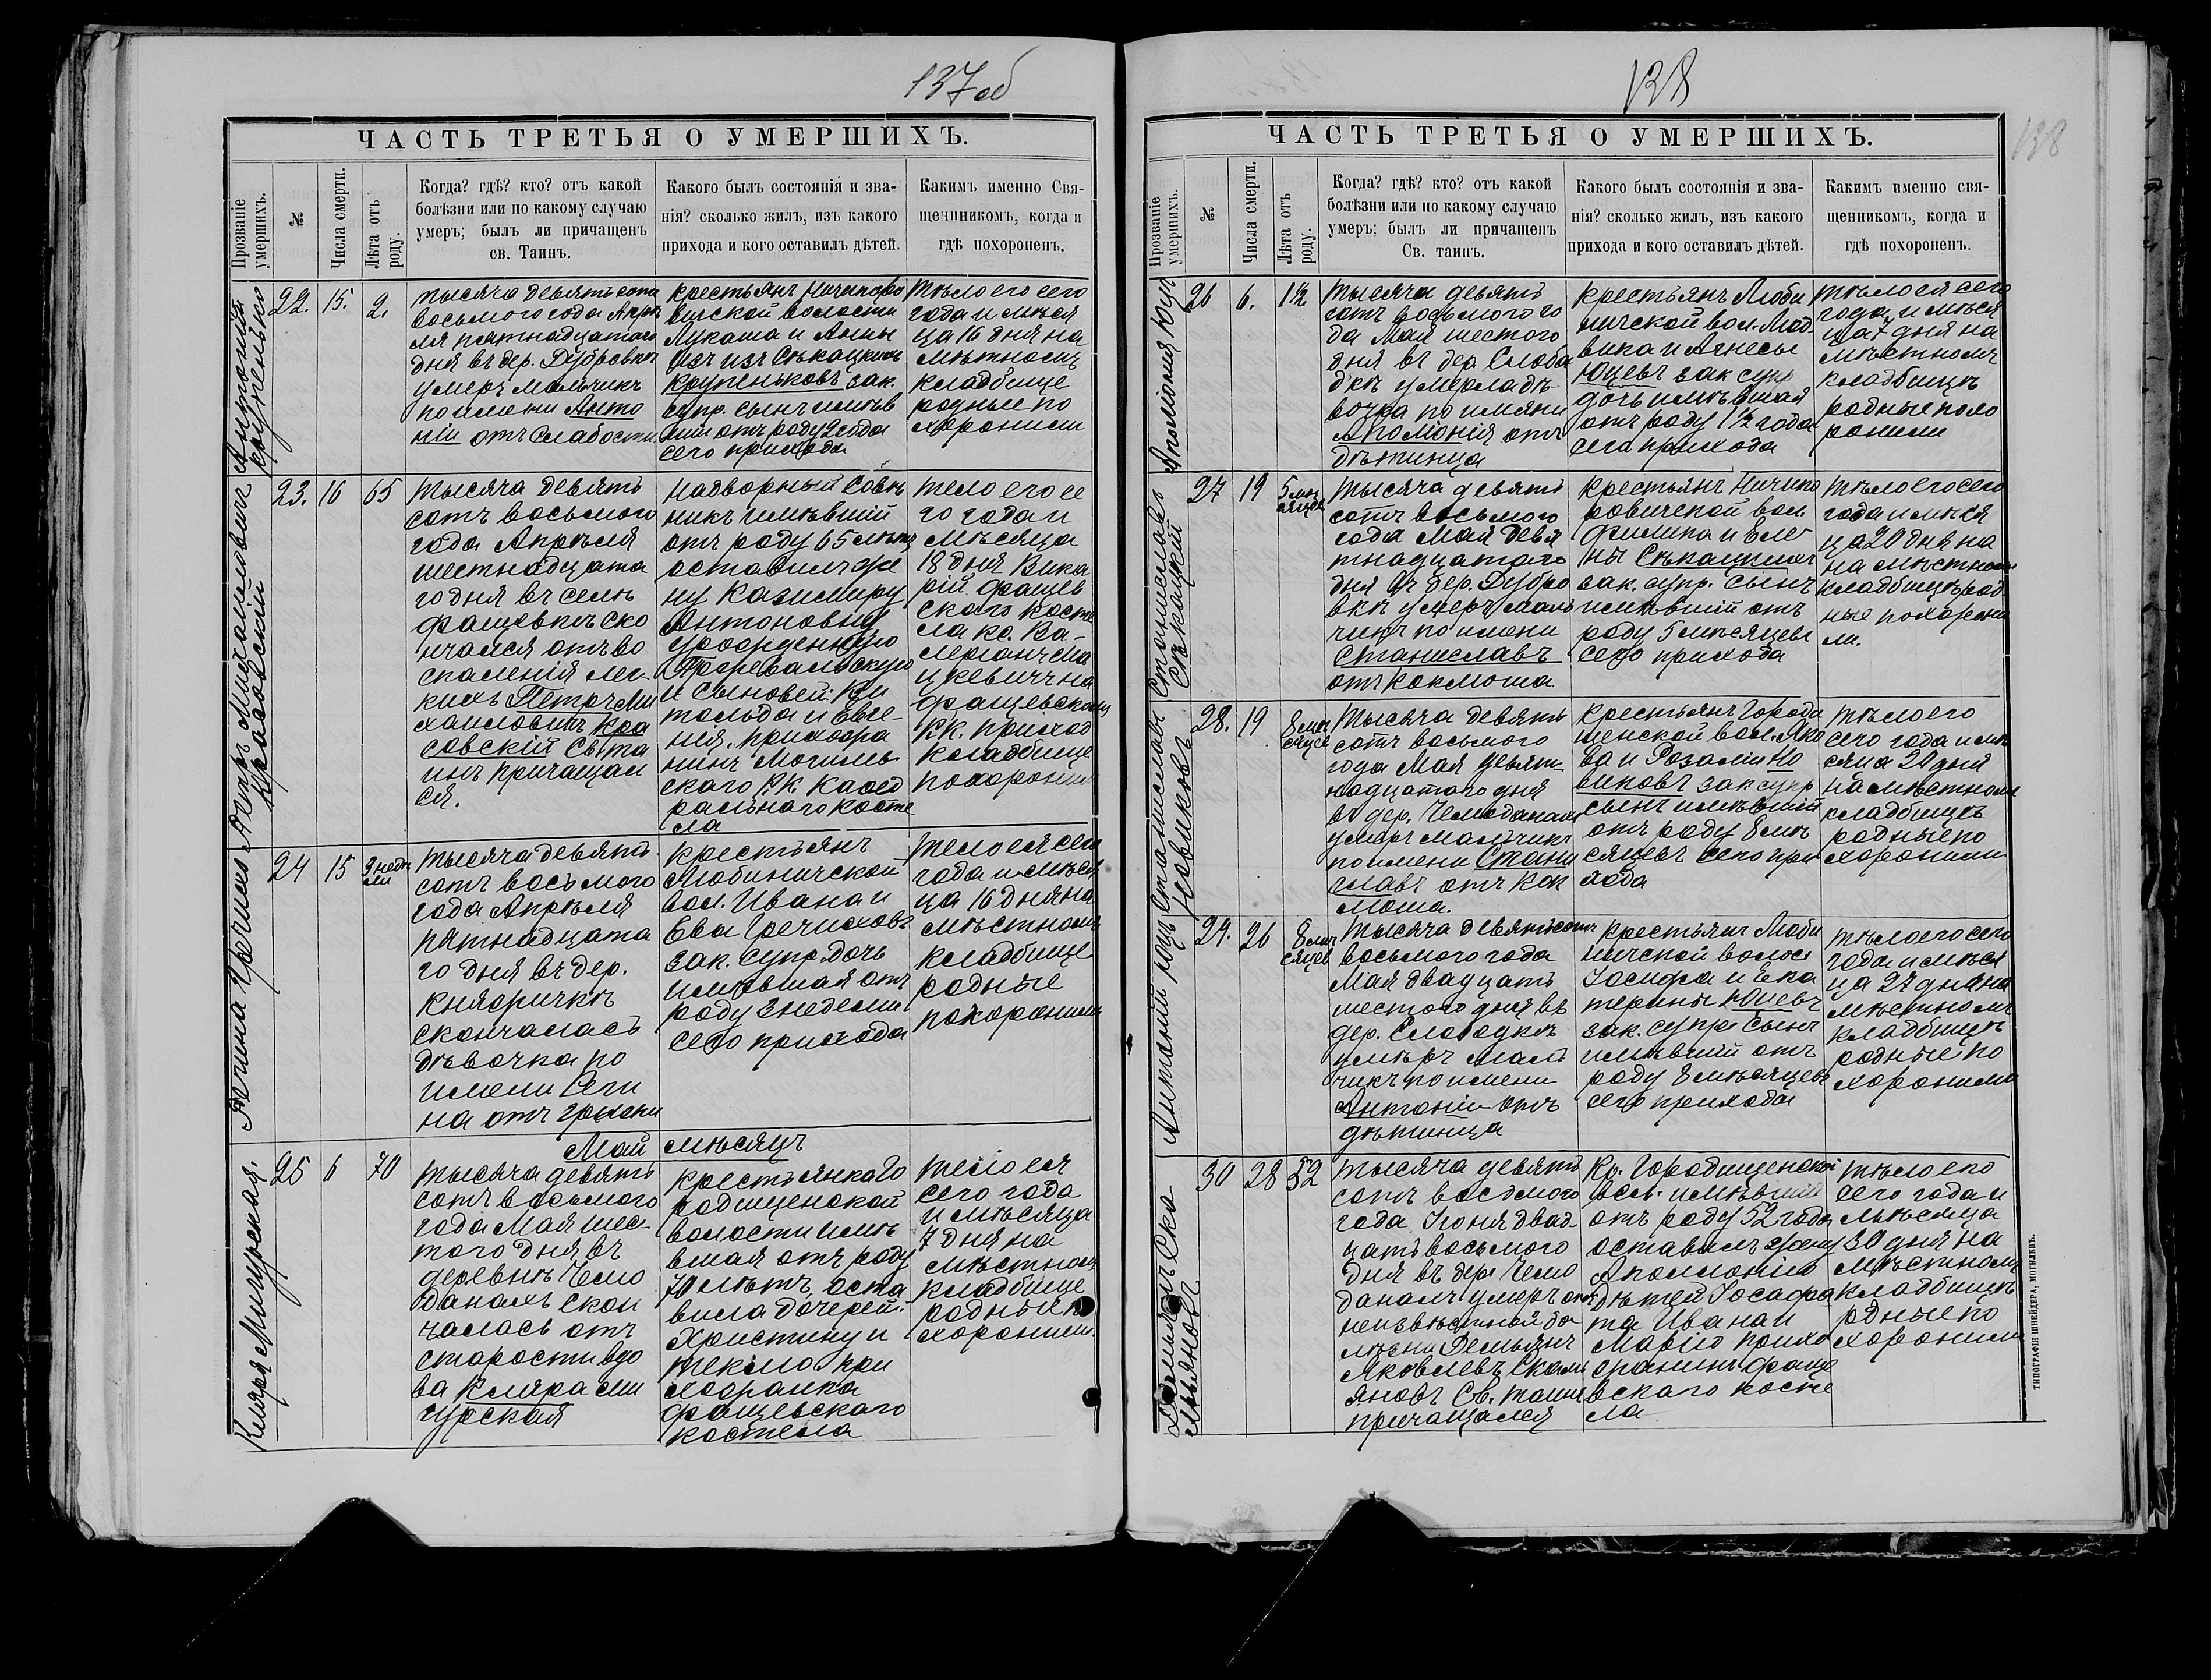 137 об
ЧАСТЬ ТРЕТЬЯ О УМЕРШИХЪ.
Прозваніе умершихъ.
№
Числа смерти.
Лѣта отъ роду.
Когда? гдѣ? кто? отъ какой
болѣзни или по какому случаю
умеръ; былъ ли причащенъ
св. Таинъ.
Какого былъ состоянія и зва-
нія? сколько жилъ, изъ какого
прихода и кого оставилъ дѣтей.
Какимъ именно Свя-
щенникомъ, когда и
гдѣ похороненъ.
Антоній
Крупенько
22.
15.
2.
тысяча девятьсотъ
восьмого года Апрѣ
ля пятнадцатаго
дня въ дер. Дубровкѣ
умеръ мальчикъ
по имени Анто
ній отъ слабости
крестьянъ Ничипоро
вичской волости
Лукаша и Анны
изъ Сѣкацкихъ
Крупеньковъ зак.
супр. сынъ имѣв
шій отъ роду 2 года
сего прихода
Тѣло его сего
года и мѣся
ца 16 дня на
мѣстномъ
кладбище
родные по
хоронили
Петръ Михайловичъ
Красовскій
23.
16
65
Тысяча девять
сотъ восьмого
года Апрѣля
шестнадцата
го дня въ селѣ
Фащевкѣ ско
нчался отъ во
спаленія лег
кихъ Петръ Ми
хайловичъ Кра
совскій Св. та
инъ причащал
ся.
Надворный Совѣт
никъ имѣвшій
отъ роду 65 лѣтъ
оставилъ же
ну Казимиру
Антоновну
урожденную
и сыновей: Ви
тольда и Евге-
нія, прихожа
нинъ Могилев
скаго Р.К. Каѳед
ральнаго косте
ла
тело его се
го года и
мѣсяца
18 дня Вика
рій Фащев
скаго косте
ла кс. Ва-
леріанъ Ма
цкевичъ на
Фащевскомъ
Р.К. приход
кладбище
похоронилъ
Регина Гречихо
24
15
3 недѣ
ли
Тысяча девять
сотъ восьмого
года Апрѣля
пятнадцата
го дня въ дер.
Княжричкѣ
скончалась
дѣвочка по
имени Реги
на отъ грижи
Крестьянъ
Любиничской
вол. Ивана и
Евы Гречиховъ
зак. супр. дочь
имѣвшая отъ
роду 3 недели
сего прихода
Тело ея сего
года и мѣся
ца 16 дня на
мѣстномъ
кладбище
родные
похоронили
Май мѣсяцъ
Кляра Мигурская.
25
6
70
Тысяча девять
сотъ восьмого
года Мая шес-
того дня въ
деревнѣ Чемо
данахъ скон
чалась отъ
старости вдо
ва Кляра Ми
гурская
крестьянка Го
родищенской
волости имѣ
вшая отъ роду
70 лѣтъ, оста
вила дочерей:
Христину и
Теклю при
хожанка
Фащевскаго
костела
Тело ея
сего года
и мѣсяца
7 дня на
мѣстномъ
кладбище
родные по
хоронили.
138
138
ЧАСТЬ ТРЕТЬЯ О УМЕРШИХЪ.
Прозваніе умершихъ.
№
Числа смерти.
Лѣта отъ роду.
Когда? гдѣ? кто? отъ какой
болѣзни или по какому случаю
умеръ; былъ ли причащенъ
Св. таинъ.
Какого былъ состоянія и зва-
нія? сколько жилъ, изъ какого
прихода и кого оставилъ дѣтей.
Какимъ именно свя-
щенникомъ, когда и
гдѣ похороненъ.
Аполіонія Юцъ
26
6.
1½.
Тысяча девять
сотъ восьмого го
да Мая шестого
дня въ дер. Слобо
дкѣ умерла дѣ
вочка по имяни
Аполіонія отъ
дѣтинца
Крестьянъ Люби
ничской вол. Люд
вика и Агнесы
Юцевъ зак супр
дочь имѣвшая
отъ роду 1½ года
сего прихода
Тѣло ея сего
года и мѣся
ца 7 дня на
мѣстномъ
кладбищѣ
родные похо
ронили
Станиславъ
Сѣкацкій
27
19
5 мѣ
сяцев
Тысяча девять
сотъ восьмого
года Мая девя
тнадцатаго
дня въ дер. Дубро
вкѣ умеръ маль
чикъ по имени
Станиславъ
отъ коклюша
Крестьянъ Ничипо
ровичской вол.
Филипа и Еле
ны Сѣкацкихъ
зак. супр. сынъ
имѣвший отъ
роду 5 мѣсяцевъ
сего прихода
Тѣло его сего
года и мѣся
ца 20 дня на
на мѣстномъ
кладбищѣ род
ные похорони
ли.
Станиславъ
Новиковъ
28.
19
8 мѣ
сяцев
Тысяча девять
сотъ восьмого
года Мая девят
надцатого дня
въ дер. Чемоданахъ
умеръ мальчикъ
по имени Стани
славъ отъ кок
люша.
Крестьянъ Городи
щенской вол. Яко
ва и Розаліи Но
виковъ зак супр
сынъ имѣвшій
отъ роду 8 мѣ
сяцевъ сего при
хода
тѣло его
сего года и мѣ
сяца 20 дня
на мѣстномъ
кладбищѣ
родные по
хоронили
Антоній Юцъ
29.
26
8 мѣ
сяцев
Тысяча девятьсотъ
восьмого года
Мая двадцать
шестого дня въ
дер. Слободкѣ
умеръ маль
чикъ по имени
Антоній отъ
дѣтинца
Крестьянъ Люби
ничской волос
Іосифа и Ека
терины Юцевъ
зак. супр. сынъ
имѣвший отъ
роду 8 мѣсяцевъ
сего прихода
тѣло его сего
года и мѣся
ца 27 дня на
мѣстномъ
кладбищѣ
родные по
хоронили
30
28
52
Тысяча девять
сотъ восьмого
года Іюня двад
цать восьмого
дня въ дер. Чемо
данахъ умеръ отъ
неизвѣстной бо
лѣзни Демьянъ
Яковлевъ Скаль
яновъ Св. таинъ
причащался
Кр. Городищенской
вол. имѣвшій
отъ роду 52 года
оставилъ жену
Аполлонію
дѣтей Іосафа
та Ивана и
Марію прихо
жанинъ Фаще
вскаго косте
ла
Тѣло его
сего года и
мѣсяца
30 дня на
мѣстномъ
кладбищѣ
рдные по
хоронили
ТИПОГРАФІЯ ШНЕЙДЕРА, МОГИЛЕВЪ.